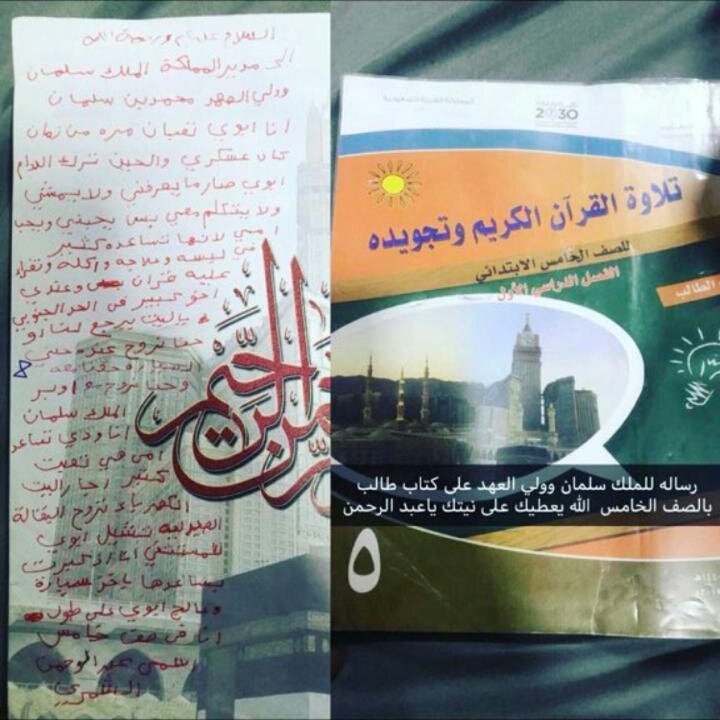 السلام عليكم ورحمة الله
الى مدير المملكة الملك سلمان
وولي العهد محمد بن سلمان
انا ابوي تعبان مره من زمان
كان عسكري والحين ترك الدوام
ابوي صار ما يعرفني ولا يمشي
ولا يتكلم معي بس يحبني ويحب
امي لانها تساعده كثير
في لبسه وعلاجه واكله وتقرا
عليه قران وعندي
اخو كبير في الحد الجنوبي
ياليت يرجع لنا لو
حنا نروح
السيارة
وحنا نروح اوبر
الملك سلمان
انا ودي تساعد
امي هي تعبت
كثير اجار البيت
الكهرباء نروح البقالة
الصيدلية تشيل ابوي
للمستشفى انا اذا كبرت
بساعدها باخر سيارة
وعالج ابوي على طول
انا في صف خامس
اسمي عبدالرحمن
الشمري
الرحمن الرحيم
المملكة العربية السعودية
2030
تلاوة القرآن الكريم وتجويده
للصف الخامس الابتدائي
الفصل الدراسي الأول
الطالب
رساله للملك سلمان وولي العهد على كتاب طالب
بالصف الخامس الله يعطيك على نيتك ياعبد الرحمن
٥